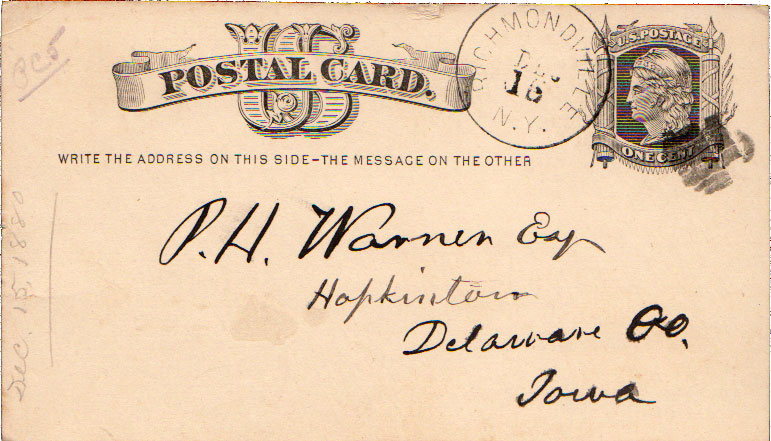 U S
POSTAL CARD.
RICHMONDVILLE
DEC
16
N.Y.
U.S. POSTAGE
ONE CENT
WRITE THE ADDRESS ON THIS SIDE–THE MESSAGE ON THE OTHER
P. H. Warner Esq
Hopkinton
Delaware Co.
Iowa
Dec. 15, 1880